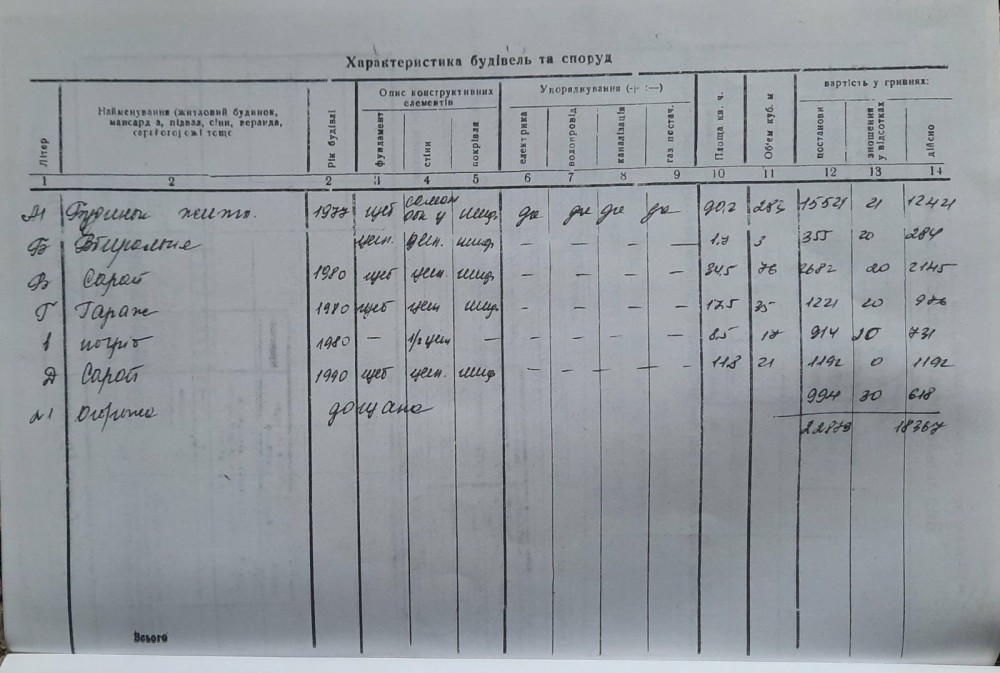 Характеристика будівель та споруд
Літер
Найменування (житловий будинок, мансарда, підвал, сіни, веранда, сарай огорожі тощо
Рік будівлі
Опис конструктивних елементів
фундамент
стіни
покрівля
Упорядкування (-|- :—)
електрика
водопровід
каналізація
газ постач.
Площа кв. ч.
Об'єм куб. м
вартість у гривнях:
постанови
зношення у відсотках
дійсно
1 2 2 3 4 5 6 7 8 9 10 11 12 13 14
Будинок житл. 1977 цеб саман обк ц шиф. да да да да 90,2 15521 21
Б Вбиральня цеп. цеп. шиф — — — — 1.7 3 355 20 284
В Сарай 1980 цеб цеп. шиф — — — — 34.5 76 2682 20 2145
Г Гараж 1980 цеб цеп шиф. — — — — 17.5 35 1221 20 976
1 погріб 1980 — 1/2 цеп — — — — — 8.5 17 914 20 731
Д Сарай 1990 цеб цеп. шиф — — — — 11.8 21 1192 0 1192
№1 Огорожа дощана 994 30 618
22879 18367
Всього